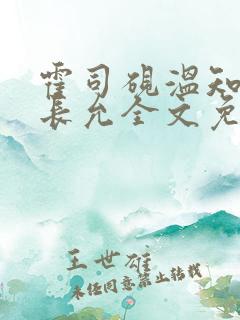 霍司砚温知
长允全文免
王世雄
未经同意禁止转载